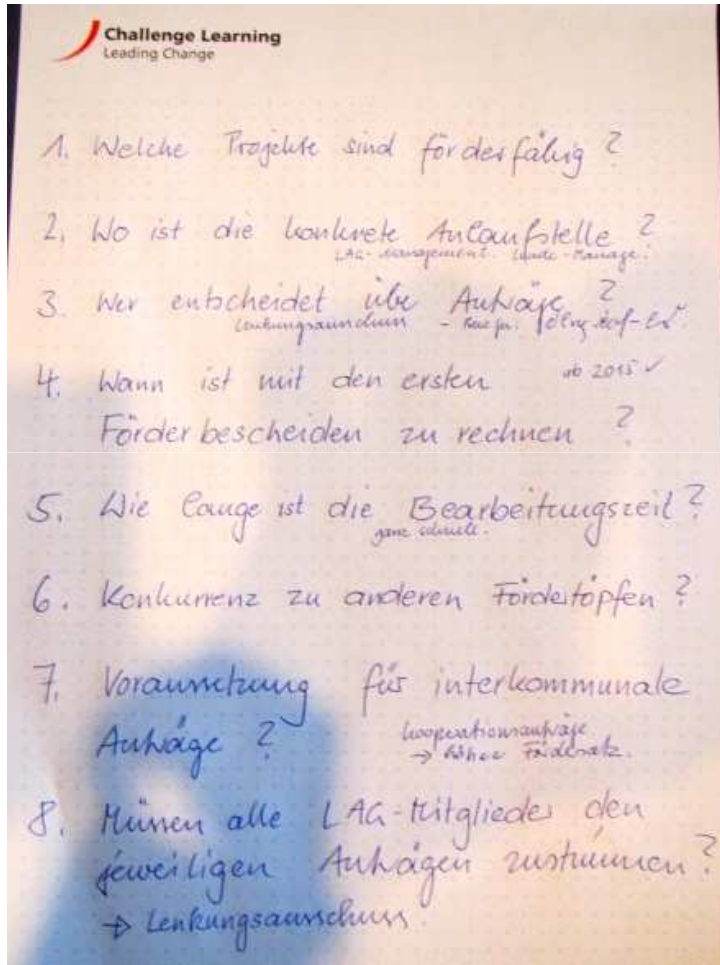 Challenge Learning
Leading Change
1. Welche Projekte sind förderfähig ?
2. Wo ist die konkrete Anlaufstelle ?
LAG-Management.
3. Wer entscheidet über Anträge ?
Lenkungsausschuss
4. Wann ist mit den ersten ab 2015 ✓
Förderbescheiden zu rechnen ?
5. Wie lange ist die Bearbeitungszeit ?
ganz schnell.
6. Konkurrenz zu anderen Fördertöpfen ?
7. Voraussetzung für interkommunale
Anträge ? Kooperationsanträge
→ höherer Fördersatz.
8. Müssen alle LAG-Mitglieder den
jeweiligen Anträgen zustimmen ?
→ Lenkungsausschuss.